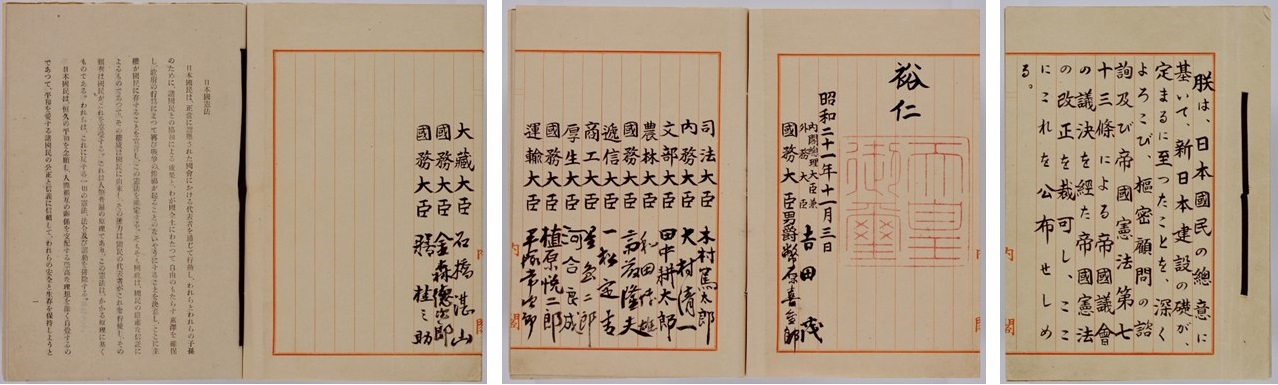 朕は、日本國民の總意に
基いて、新日本建設の礎が、
定まるに至つたことを、深く
よろこび、樞密顧問の諮
詢及び帝國憲法第七
十三條による帝國議會
の議決を經た帝國憲法
の改正を裁可し、ここ
にこれを公布せしめ
る。
内閣
裕仁
天皇
御璽
昭和二十一年十一月三日
内閣總理大臣兼
外務大臣 吉田茂
國務大臣 男爵幣原喜重郎
内閣
司法大臣 木村篤太郎
内務大臣 大村清一
文部大臣 田中耕太郎
農林大臣 和田博雄
國務大臣 斎藤隆夫
遞信大臣 一松定吉
商工大臣 星島二郎
厚生大臣 河合良成
國務大臣 植原悦二郎
運輸大臣 平塚常次郎
内閣
大藏大臣 石橋湛山
國務大臣 金森德次郎
國務大臣 膳桂之助
内閣
日本國憲法
日本國民は、正當に選擧された國會における代表者を通じて行動し、われらとわれらの子孫
のために、諸國民との協和による成果と、わが國全土にわたつて自由のもたらす惠澤を確保
し、政府の行爲によつて再び戰爭の慘禍が起ることのないやうにすることを決意し、ここに主
權が國民に存することを宣言し、この憲法を確定する。そもそも國政は、國民の嚴肅な信託に
よるものであつて、その權威は國民に由來し、その權力は國民の代表者がこれを行使し、その
福利は國民がこれを享受する。これは人類普遍の原理であり、この憲法は、かかる原理に基く
ものである。われらは、これに反する一切の憲法、法令及び詔敕を排除する。
日本國民は、恒久の平和を念願し、人間相互の關係を支配する崇高な理想を深く自覺するの
であつて、平和を愛する諸國民の公正と信義に信頼して、われらの安全と生存を保持しようと
一